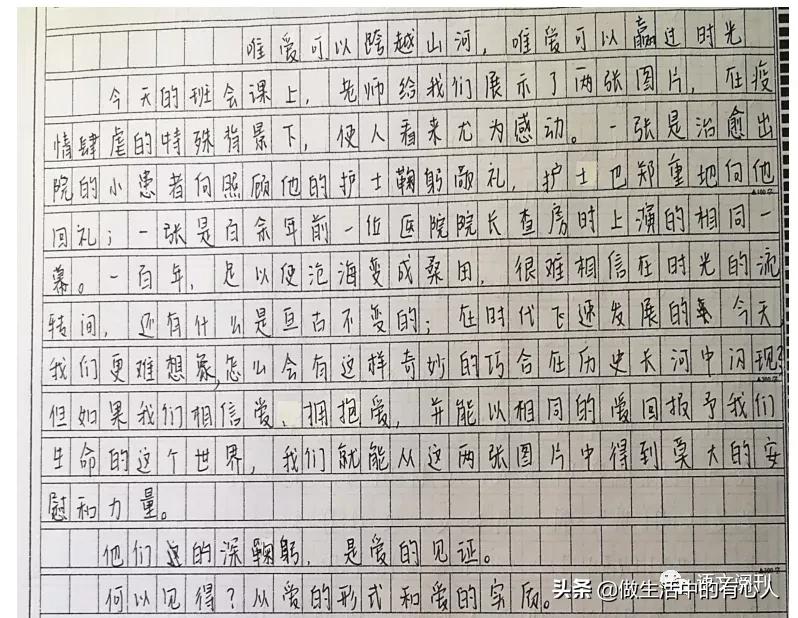 唯爱可以跨越山河，唯爱可以赢过时光
今天的班会课上，老师给我们展示了两张图片，在疫
情肆虐的特殊背景下，使人看来尤为感动。一张是治愈出
院的小患者向照顾他的护士鞠躬敬礼，护士也郑重地向他
△100字
回礼；一张是百余年前一位医院院长查房时上演的相同一
幕。一百年，足以使沧海变成桑田，很难相信在时光的流
转间，还有什么是亘古不变的；在时代飞速发展的今天，
我们更难想象，怎么会有这样奇妙的巧合在历史长河中闪现？
但如果我们相信爱、拥抱爱，并能以相同的爱回报予我们
生命的这个世界，我们就能从这两张图片中得到莫大的安
慰和力量。
他们的深鞠躬，是爱的见证。
△300字
何以见得？从爱的形式和爱的实质。
头条 @做生活中的有心人